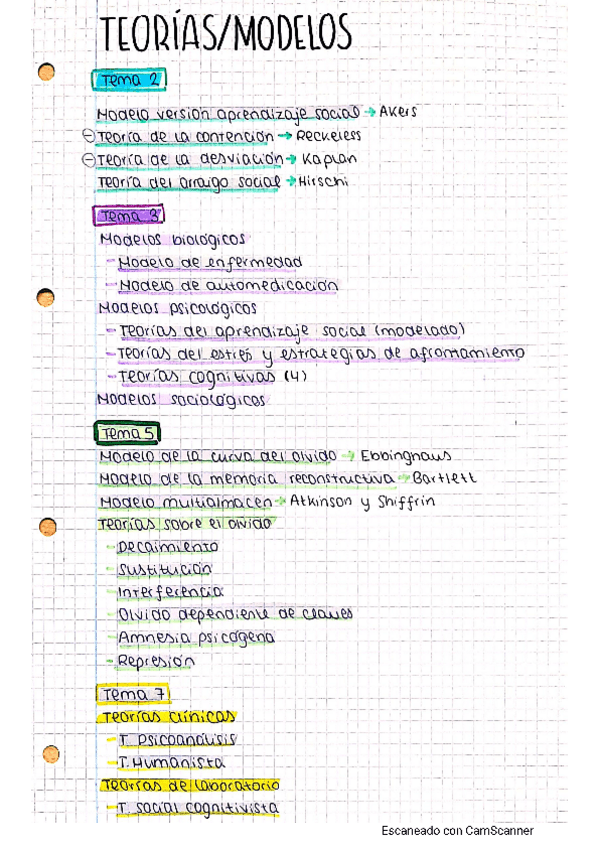 TEORÍAS/MODELOS
Tema 2
Modelo versión aprendizaje social → Akers
⊖ Teoría de la contención → Reckeless
⊖ Teoría de la desviación → Kaplan
Teoría del arraigo social → Hirschi
Tema 3
Modelos biológicos
- Modelo de enfermedad
- Modelo de automedicación
Modelos psicológicos
- Teorías del aprendizaje social (modelado)
- Teorías del estrés y estrategias de afrontamiento
- Teorías cognitivas (4)
Modelos sociológicos
Tema 5
Modelo de la curva del olvido → Ebbinghaus
Modelo de la memoria reconstructiva → Bartlett
Modelo multialmacen → Atkinson y Shiffrin
Teorías sobre el olvido
- Decaimiento
- Sustitución
- Interferencia
- Olvido dependiente de claves
- Amnesia psicógena
- Represión
Tema 7
Teorías clínicas
- T. Psicoanálisis
- T. Humanista
Teorías de laboratorio
- T. social cognitivista
Escaneado con CamScanner